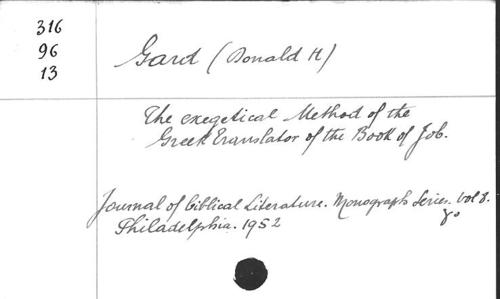 316
96
13
Gard (Donald H)
The exegetical Method of the
Greek Translator of the Book of Job.
Journal of biblical Literature. Monograph Series. Vol 8.
8º
Philadelphia. 1952